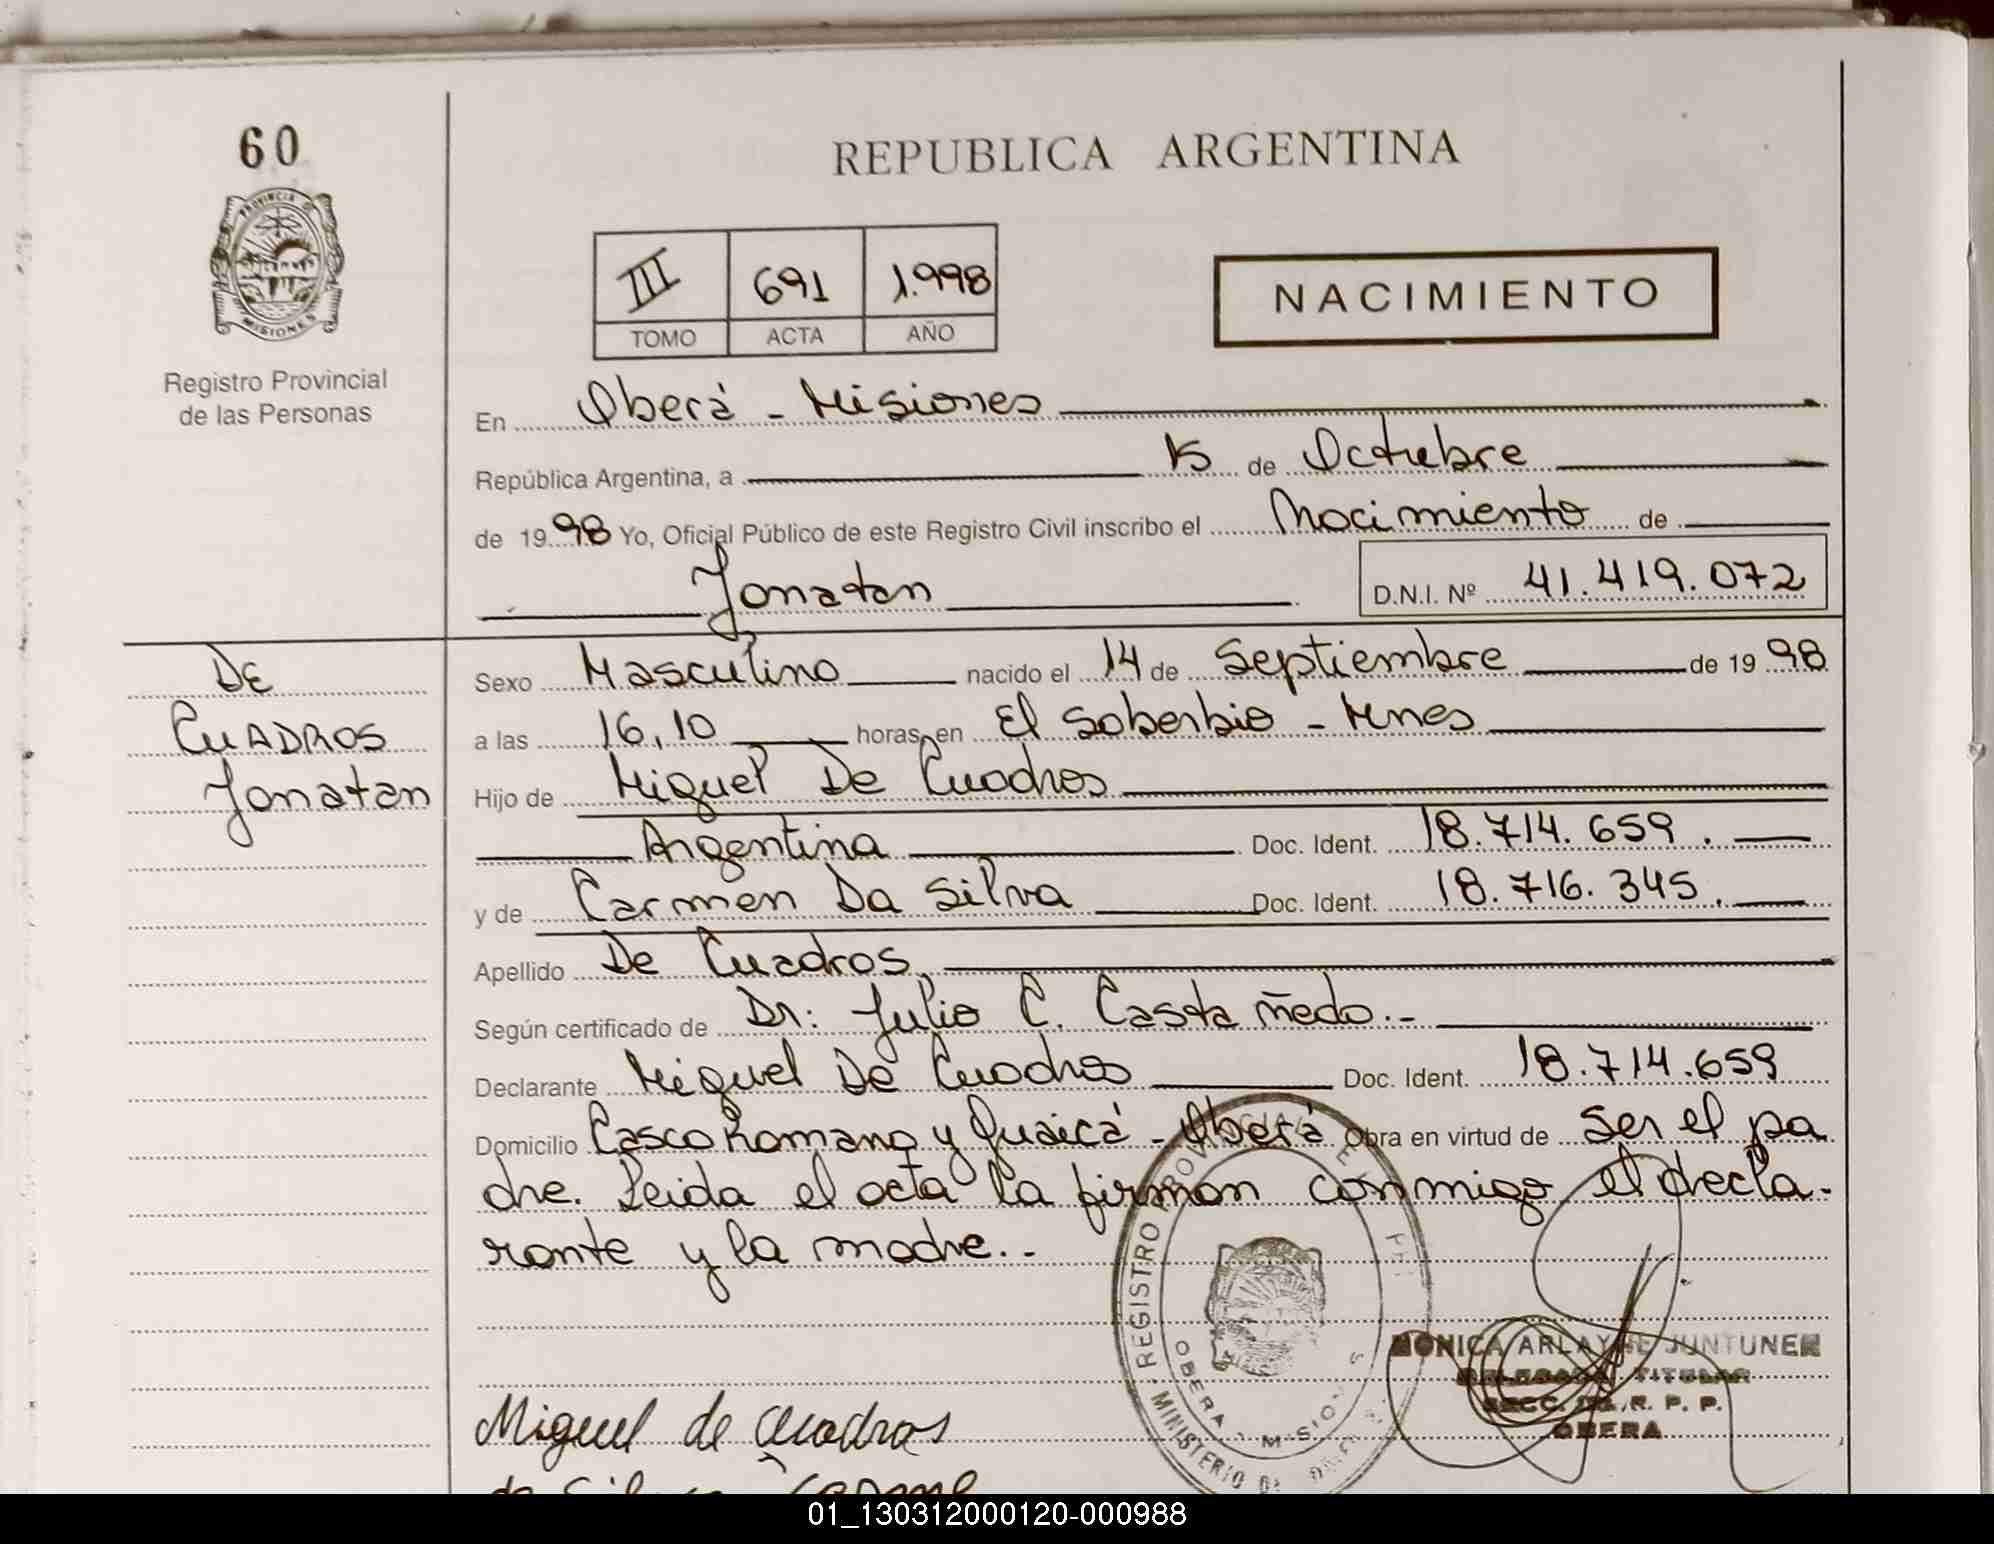 60
PROVINCIA DE
MISIONES
Registro Provincial
de las Personas
REPUBLICA ARGENTINA
III 691 1.998
TOMO ACTA AÑO
NACIMIENTO
En Oberá - Misiones
República Argentina, a 15 de Octubre
de 1998 Yo, Oficial Público de este Registro Civil inscribo el Nacimiento de
Jonatan D.N.I. Nº 41.419.072
DE
CUADROS
Jonatan
Sexo Masculino nacido el 14 de Septiembre de 1998
a las 16,10 horas, en El Soberbio - Mnes
Hijo de Miguel De Cuadros
Argentina Doc. Ident. 18.714.659.
y de Carmen Da Silva Doc. Ident. 18.716.345.
Apellido De Cuadros.
Según certificado de Dr: Julio C. Castañedo.-
Declarante Miguel De Cuadros Doc. Ident. 18.714.659
Domicilio Casco Romano y Guaicá - Oberá Obra en virtud de ser el pa
dre. Leida el acta la firman conmigo el decla-
rante y la madre..-
REGISTRO PROVINCIAL DE
MINISTERIO
OBERA MISIONES
MONICA ARLAYNE JUNTUNEN
DELEGADA TITULAR
SECC. R. P. P.
OBERA
Miguel de cuadros
da Silva Carme
01_130312000120-000988